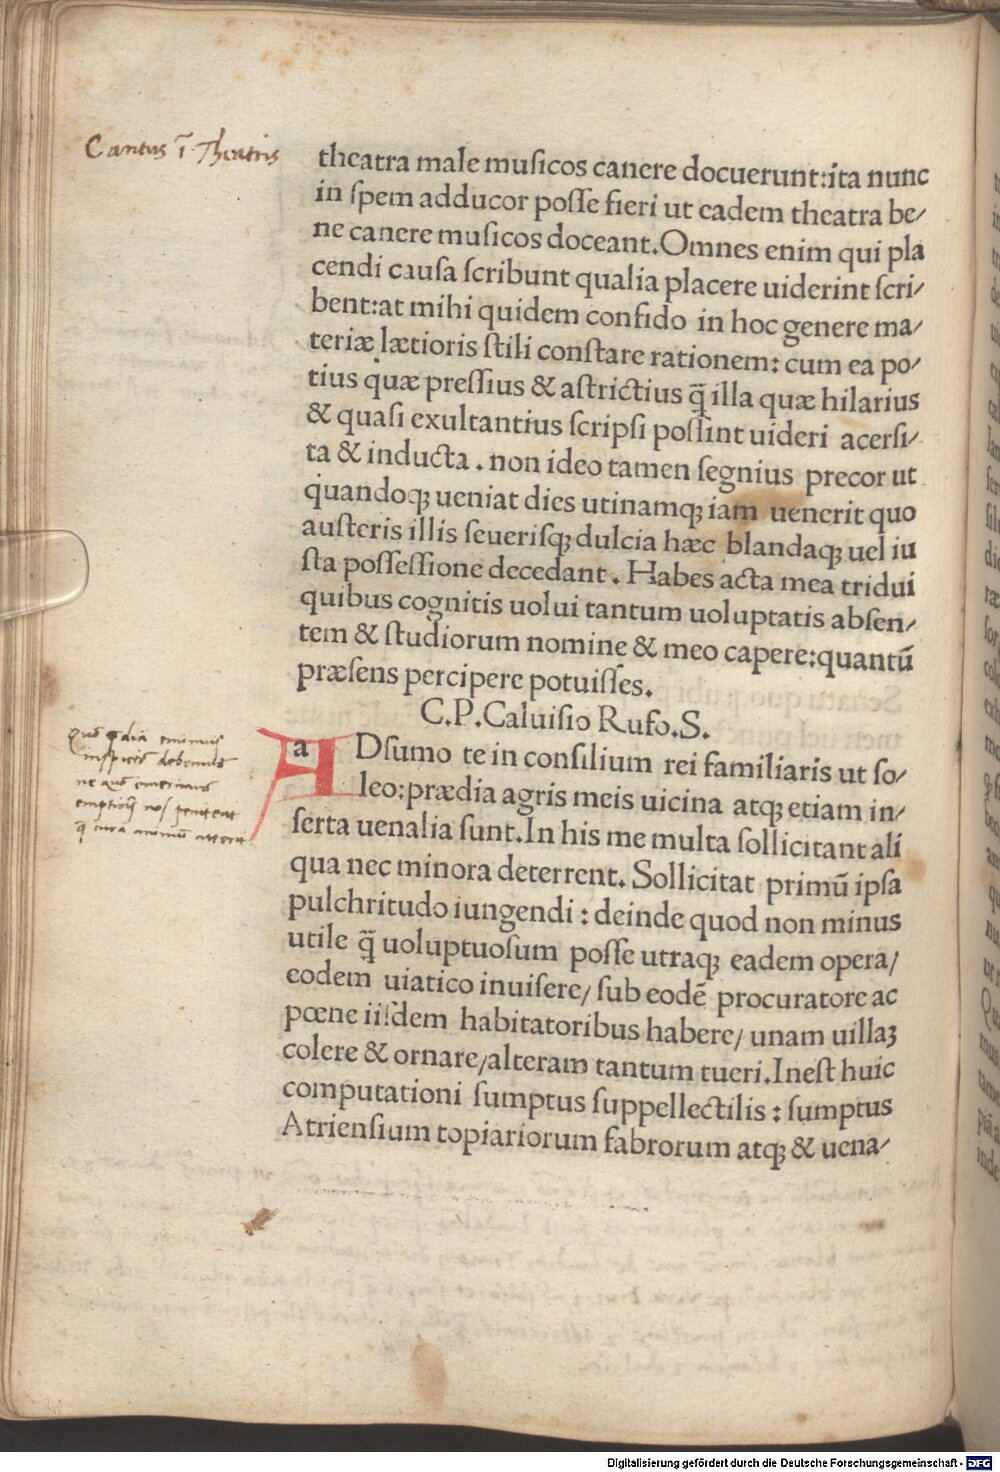 Cantus ī Theatris
theatra male muſicos canere docuerunt:ita nunc
in ſpem adducor poſſe fieri ut eadem theatra be/
ne canere muſicos doceant.Omnes enim qui pla
cendi cauſa ſcribunt qualia placere uiderint ſcri/
bent:at mihi quidem confido in hoc genere ma/
teriæ lætioris ſtili conſtare rationem: cum ea po/
tius quæ preſſius & aſtrictius q̄ illa quæ hilarius
& quaſi exultantius ſcripſi poſſint uideri acerſi/
ta & inducta . non ideo tamen ſegnius precor ut
quandoqꝫ ueniat dies utinamqꝫ iam uenerit quo
auſteris illis ſeueriſqꝫ dulcia hæc blandaqꝫ uel iu
ſta poſſeſſione decedant . Habes acta mea tridui
quibus cognitis uolui tantum uoluptatis abſen/
tem & ſtudiorum nomine & meo capere:quantū
præſens percipere potuiſſes.
C.P.Caluiſio Rufo.S.
inspicere debemus
a
A
Dſumo te in conſilium rei familiaris ut ſo/
leo:prædia agris meis uicina atqꝫ etiam in/
ſerta uenalia ſunt.In his me multa ſollicitant ali
qua nec minora deterrent. Sollicitat primū ipſa
pulchritudo iungendi : deinde quod non minus
utile q̄ uoluptuoſum poſſe utraqꝫ eadem opera/
eodem uiatico inuiſere/ ſub eodē procuratore ac
pœne iiſdem habitatoribus habere/ unam uillaꝫ
colere & ornare/alteram tantum tueri.Ineſt huic
computationi ſumptus ſuppellectilis : ſumptus
Atrienſium topiariorum fabrorum atqꝫ & uena/
Digitalisierung gefördert durch die Deutsche Forschungsgemeinschaft - DFG